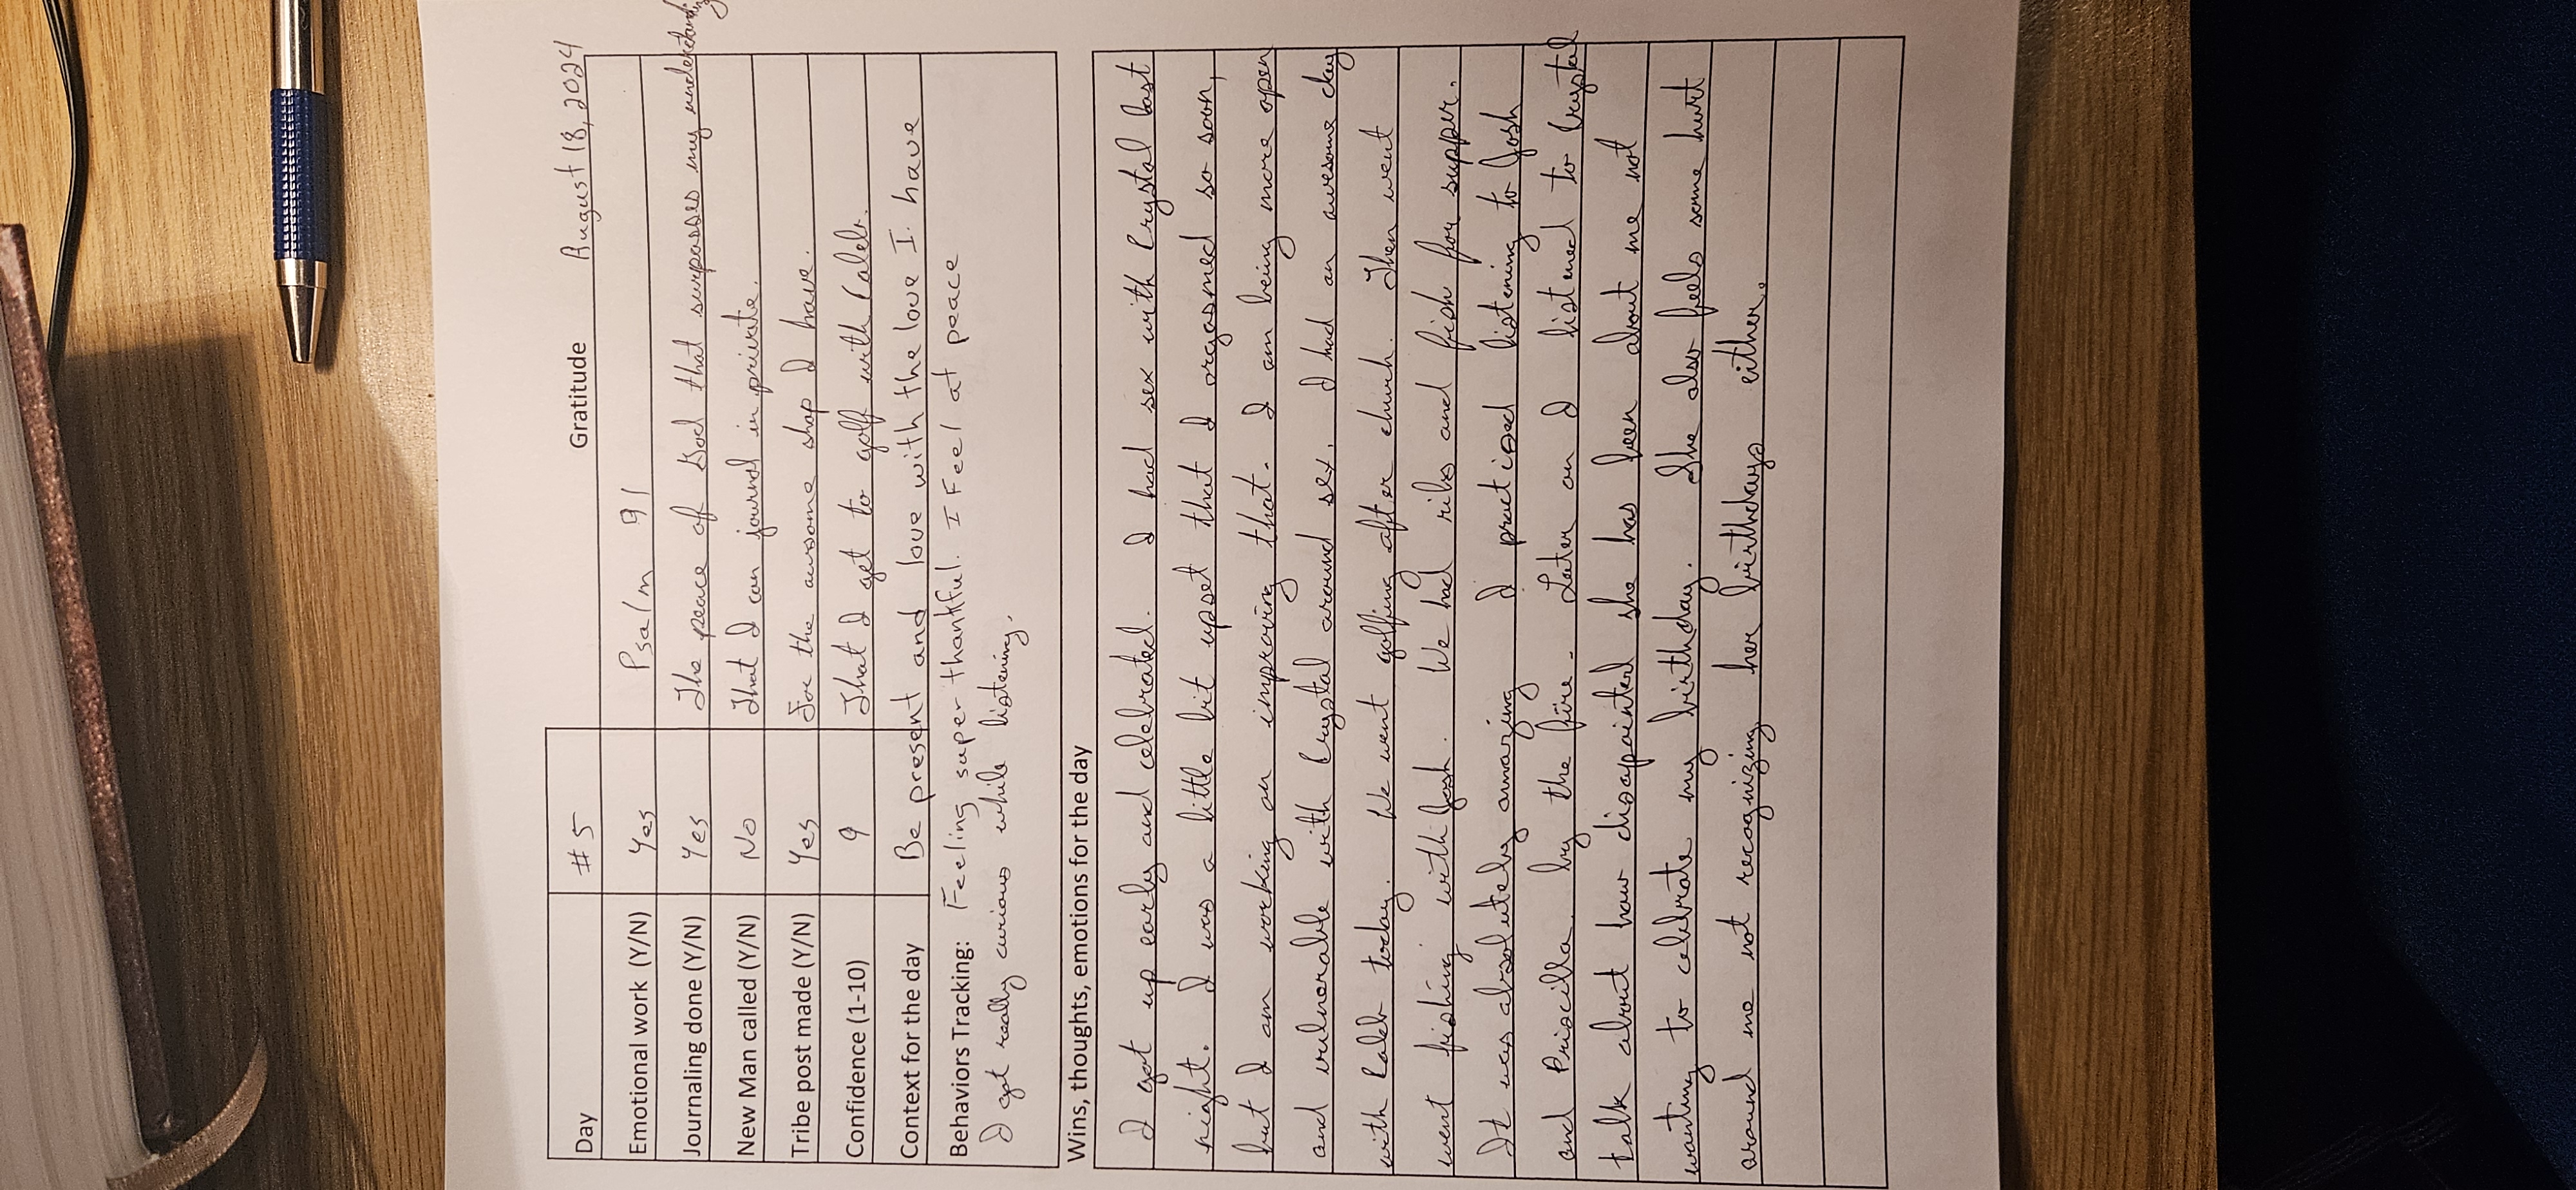 Day # 5 Gratitude August 18, 2024
Emotional work (Y/N) Yes Psalm 91
Journaling done (Y/N) Yes The peace of God that surpasses my understanding
New Man called (Y/N) No That I can journal in private.
Tribe post made (Y/N) Yes For the awesome shop I have.
Confidence (1-10) 9 That I get to golf with Caleb.
Context for the day Be present and love with the love I have
Behaviors Tracking: Feeling super thankful. I Feel at peace
I got really curious while listening.
Wins, thoughts, emotions for the day
I got up early and celebrated. I had sex with Crystal last
night. I was a little bit upset that I orgasmed so soon,
but I am working on improving that. I am being more open
and vulnerable with Crystal around sex. I had an awesome day
with Caleb today. We went golfing after church. Then went
went fishing with Josh. We had ribs and fish for supper.
It was absolutely amazing I practiced listening to Josh
and Priscilla by the fire. Later on I listened to Crystal
talk about how disappointed she has been about me not
wanting to celebrate my birthday. She also feels some hurt
around me not recognizing her birthdays either.